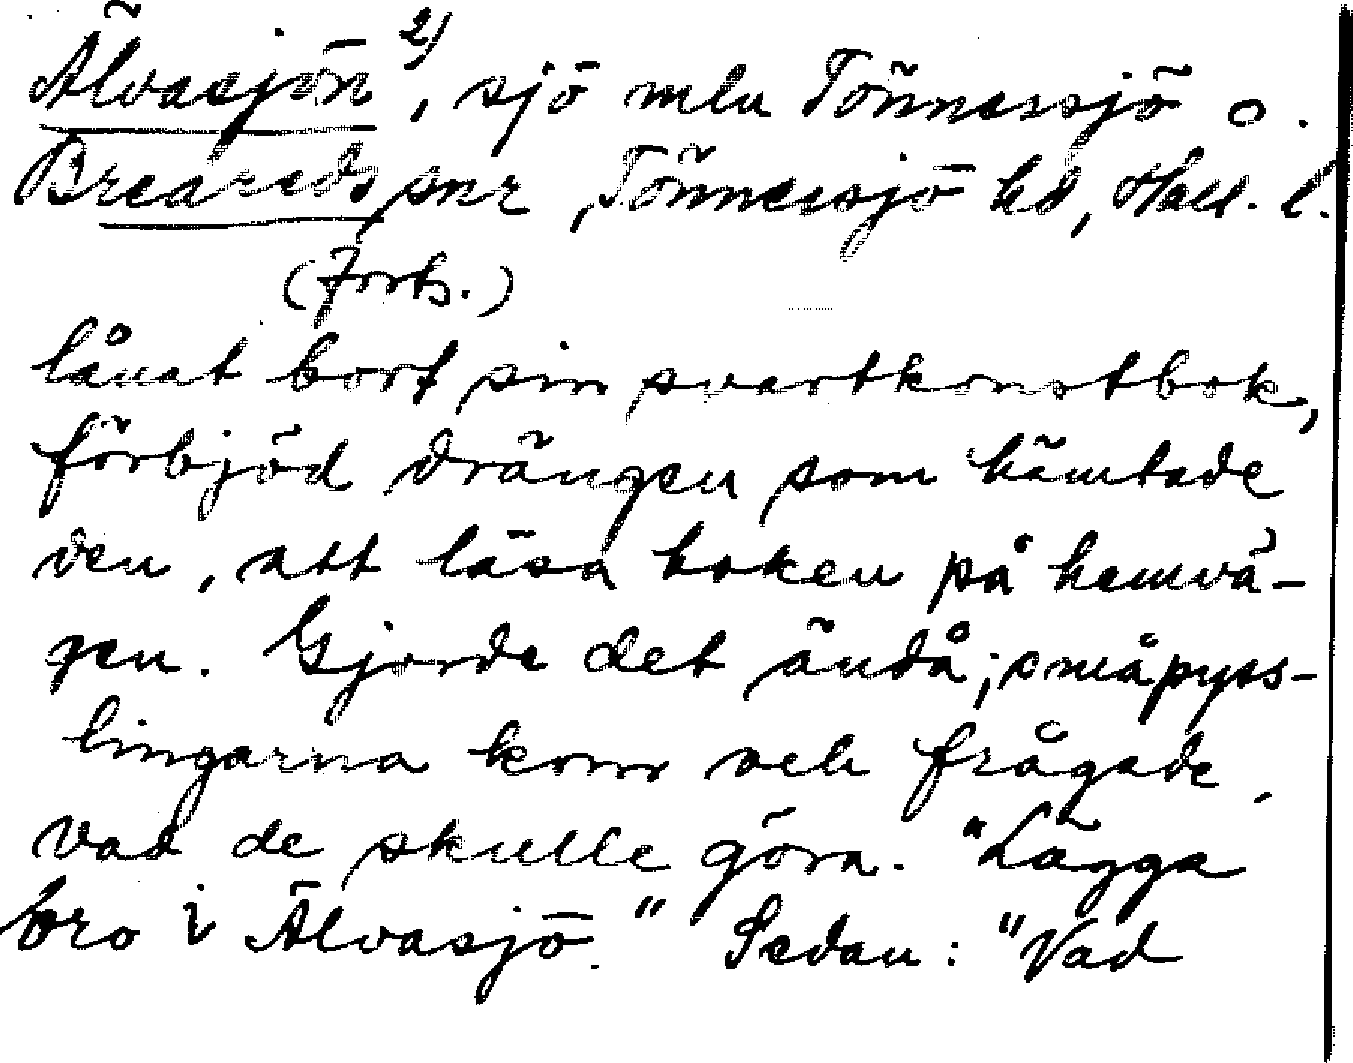 Älvasjön 2), sjö mln Tönnersjö o.
Breareds snr, Tönnersjö hd, Hall. l.
(Forts.)
lånat bort sin svartkonstbok,
förbjöd drängen som hämtade
den, att läsa boken på hemvä-
gen. Gjorde det ändå; småpyss-
lingarna kom och frågade
vad de skulle göra. "Lägga
bro i Älvasjö." Sedan: "Vad